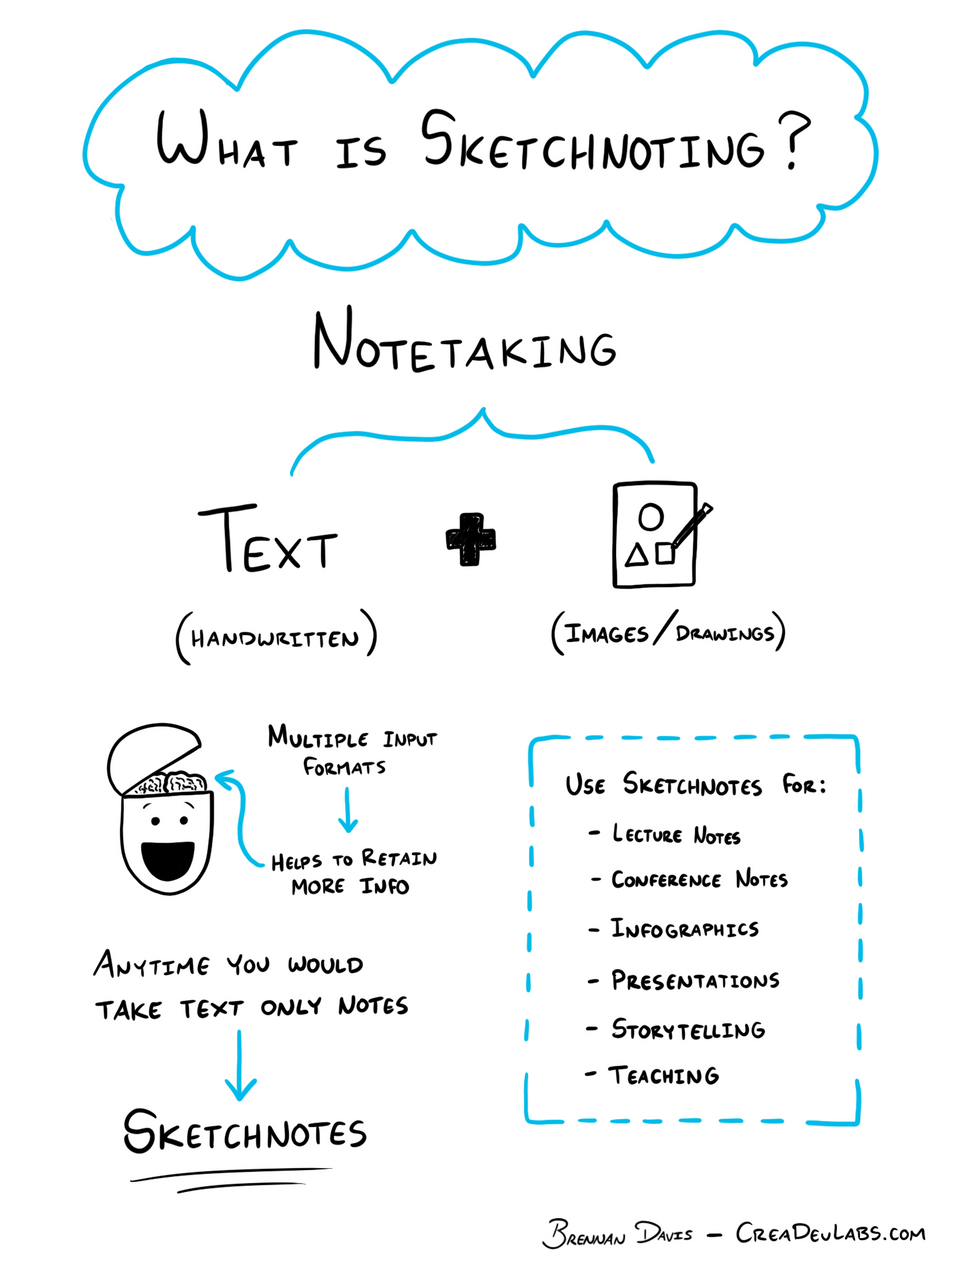 What is Sketchnoting?
Notetaking
Text
(Handwritten)
(Images/Drawings)
Multiple Input
Formats
Helps to Retain
more Info
Anytime you would
take text only notes
Sketchnotes
Use Sketchnotes for:
- Lecture Notes
- Conference Notes
- Infographics
- Presentations
- Storytelling
- Teaching
Brennan Davis – CreaDevLabs.com